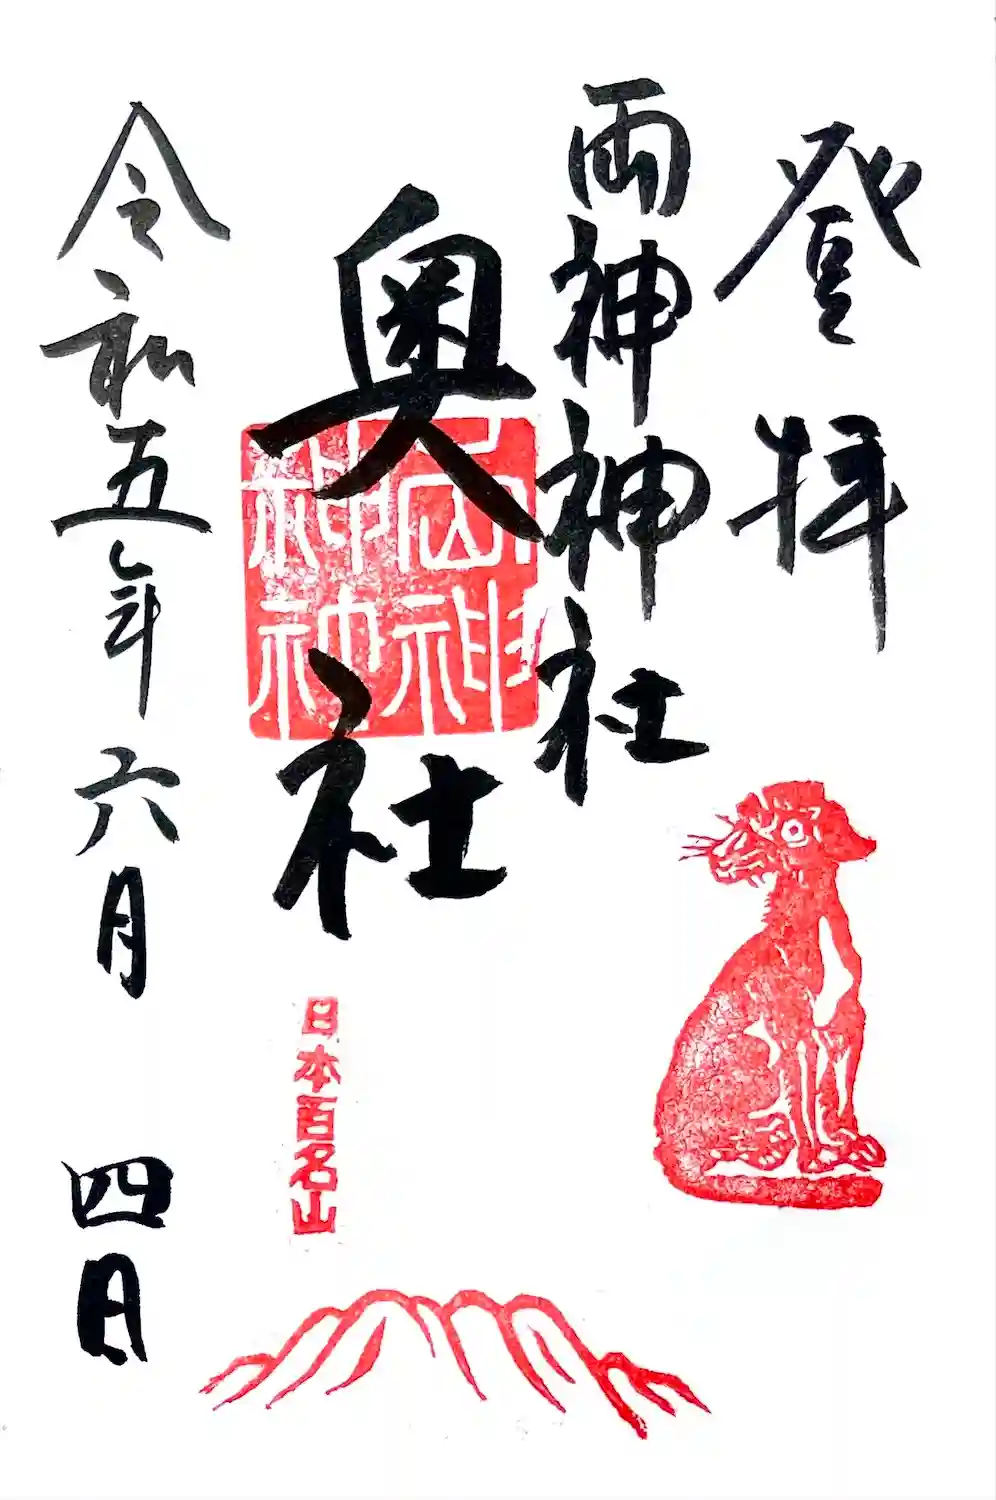 登拝
両神神社
奥社
両神神社
日本百名山
令和五年六月四日